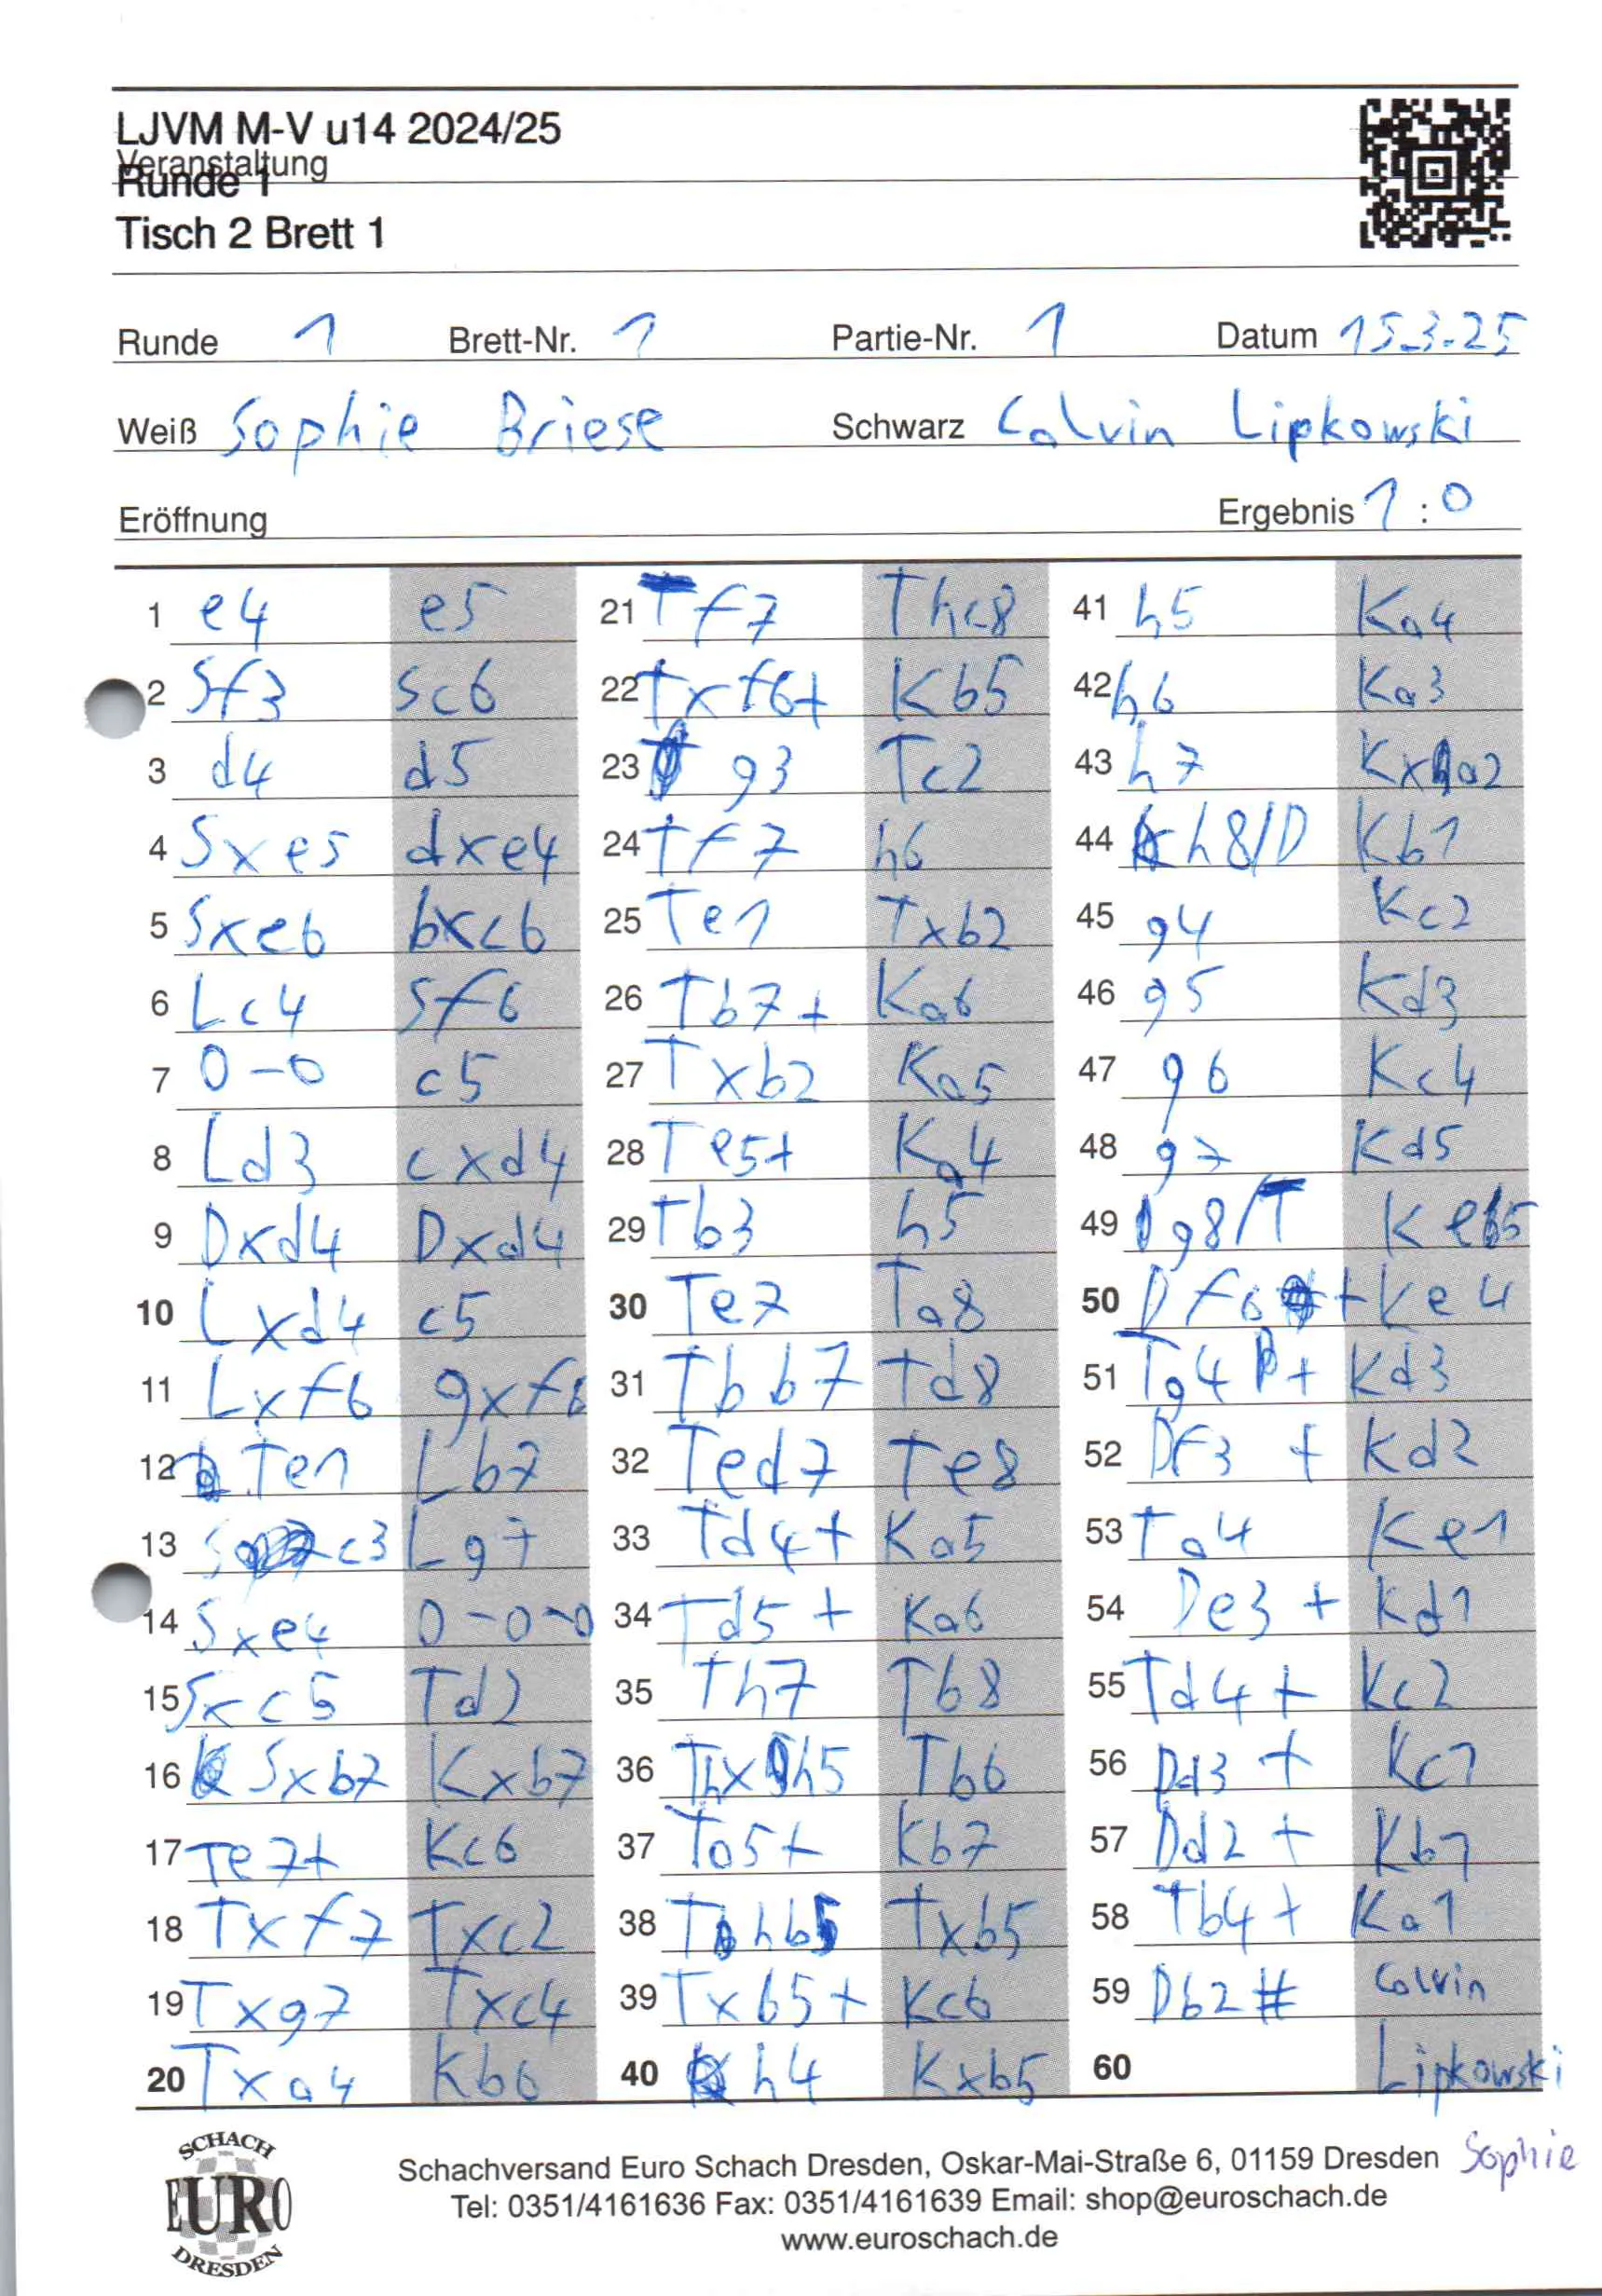 LJVM M-V u14 2024/25
Veranstaltung
Runde 1
Tisch 2 Brett 1
Runde 1 Brett-Nr. 1 Partie-Nr. 1 Datum 15.3.25
Weiß Sophie Briese Schwarz Calvin Lipkowski
Eröffnung Ergebnis 1 : 0
1 e4 e5
2 Sf3 Sc6
3 d4 d5
4 Sxe5 dxe4
5 Sxc6 bxc6
6 Lc4 Sf6
7 0-0 c5
8 Ld3 cxd4
9 Dxd4 Dxd4
10 Lxd4 c5
11 Lxf6 gxf6
12 Te1 Lb7
13 Sc3 Lg7
14 Sxe4 0-0-0
15 Sxc5 Td2
16 Sxb7 Kxb7
17 Te7+ Kc6
18 Txf7 Txc2
19 Txg7 Txc4
20 Txa4 Kb6
21 Tf7 Thc8
22 Txf6+ Kb5
23 g3 Tc2
24 Tf7 h6
25 Te1 Txb2
26 Tb7+ Ka6
27 Txb2 Ka5
28 Te5+ Ka4
29 Tb3 h5
30 Te7 Ta8
31 Tbb7 Td8
32 Ted7 Te8
33 Td4+ Ka5
34 Td5+ Ka6
35 Th7 Tb8
36 Thxh5 Tb6
37 Ta5+ Kb7
38 Thb5 Txb5
39 Txb5+ Kc6
40 h4 Kxb5
41 h5 Ka4
42 h6 Ka3
43 h7 Kxa2
44 h8/D Kb1
45 g4 Kc2
46 g5 Kd3
47 g6 Kc4
48 g7 Kd5
49 g8/T Ke5
50 Df6+ Ke4
51 Tg4+ Kd3
52 Df3+ Kd2
53 Ta4 Ke1
54 De3+ Kd1
55 Td4+ Kc2
56 Dd3+ Kc1
57 Dd2+ Kb1
58 Tb4+ Ka1
59 Db2# Calvin
60 Lipkowski
Sophie
SCHACH
EURO
DRESDEN
Schachversand Euro Schach Dresden, Oskar-Mai-Straße 6, 01159 Dresden
Tel: 0351/4161636 Fax: 0351/4161639 Email: shop@euroschach.de
www.euroschach.de